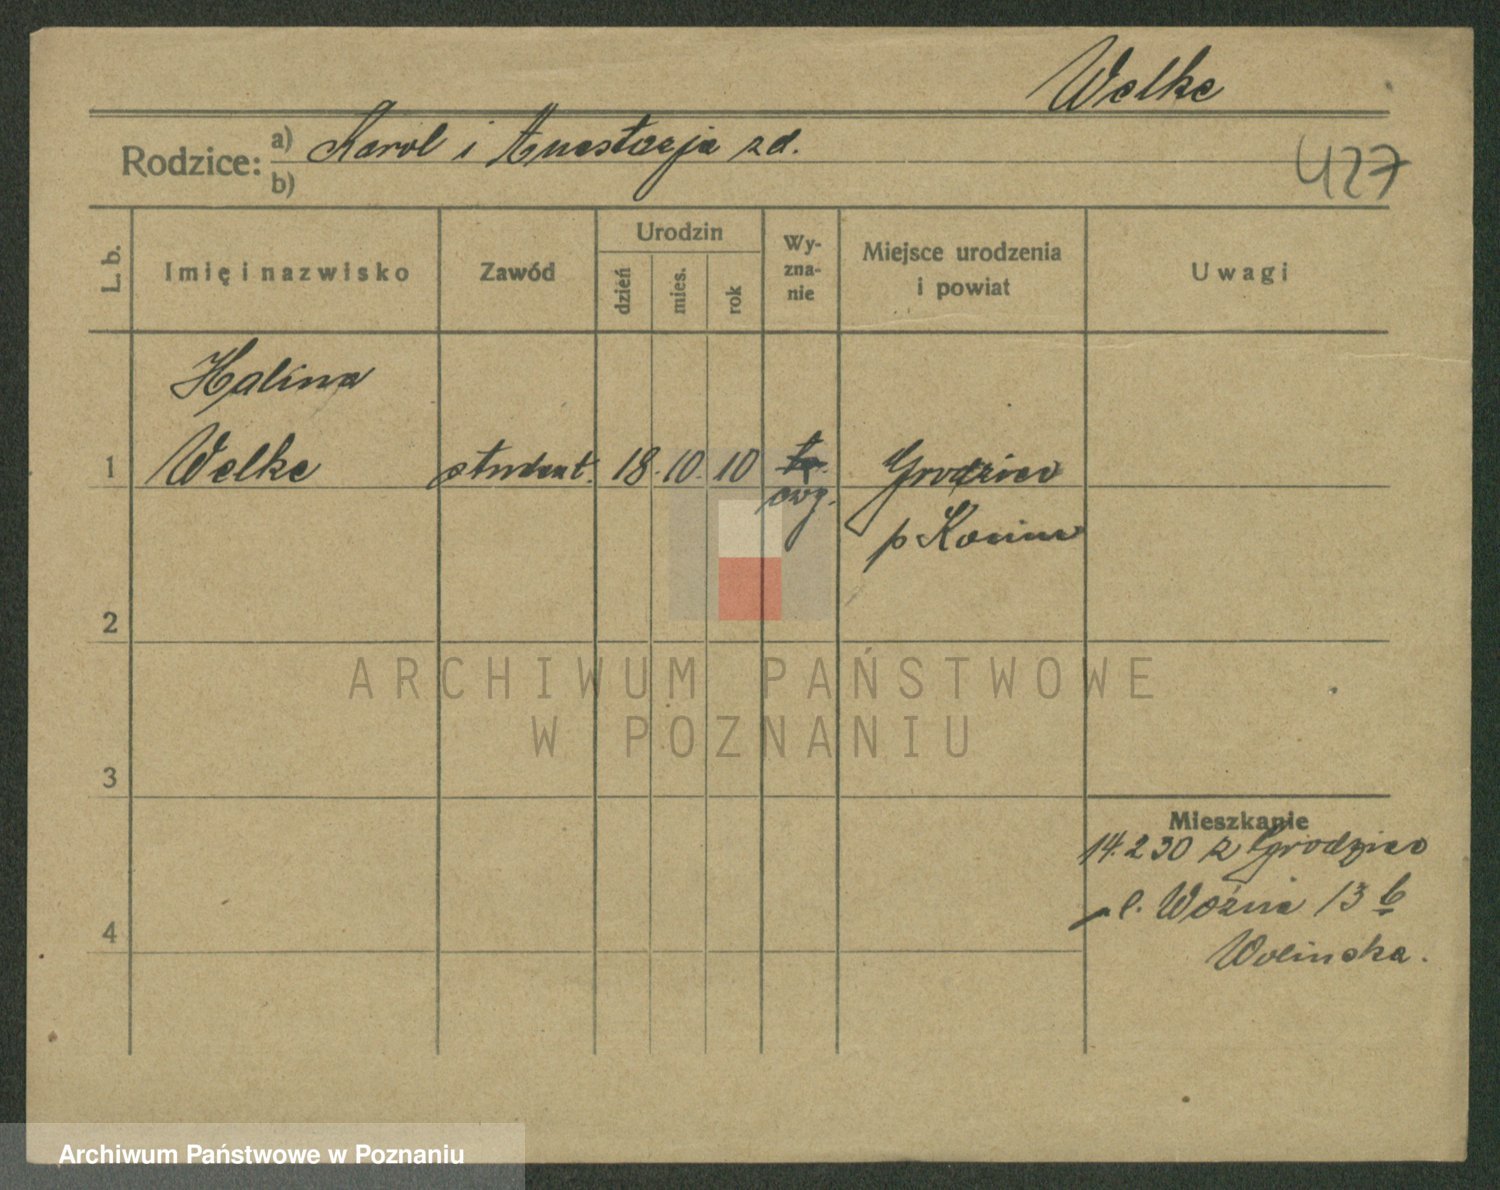 Welke
Rodzice: a) Karol i Anastazja zd.
b)
427
L. b.
Imię i nazwisko
Zawód
Urodzin
dzień
mies.
rok
Wy-
zna-
nie
Miejsce urodzenia
i powiat
Uwagi
Halina
1 Welke student. 18. 10. 10 Grodziec
ewg. p Konin
2
3
4
Mieszkanie
14.2 30 z Grodziec
ul. Woźna 13 b
Wolinska.
ARCHIWUM PAŃSTWOWE
W POZNANIU
Archiwum Państwowe w Poznaniu